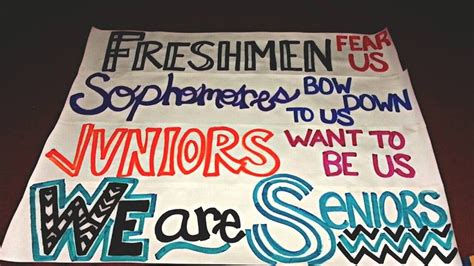 FRESHMEN FEAR US
Sophomores BOW DOWN TO US
JUNIORS WANT TO BE US
WE are SENIORS